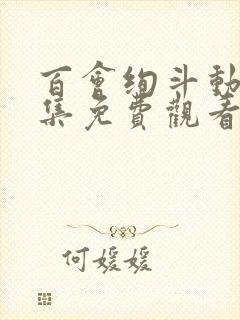 百會絢斗動
集免費觀看
何媛媛